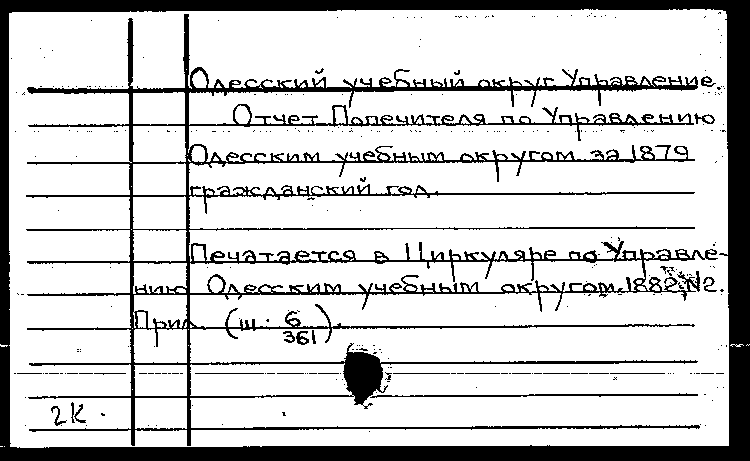 Одесский учебный округ. Управление.
Отчет Попечителя по Управлению
Одесским учебным округом за 1879
гражданский год.
Печатается в Циркуляре по Управле-
нию Одесским учебным округом. 1882. №2.
Прил. (ш. 6/361).
2К.